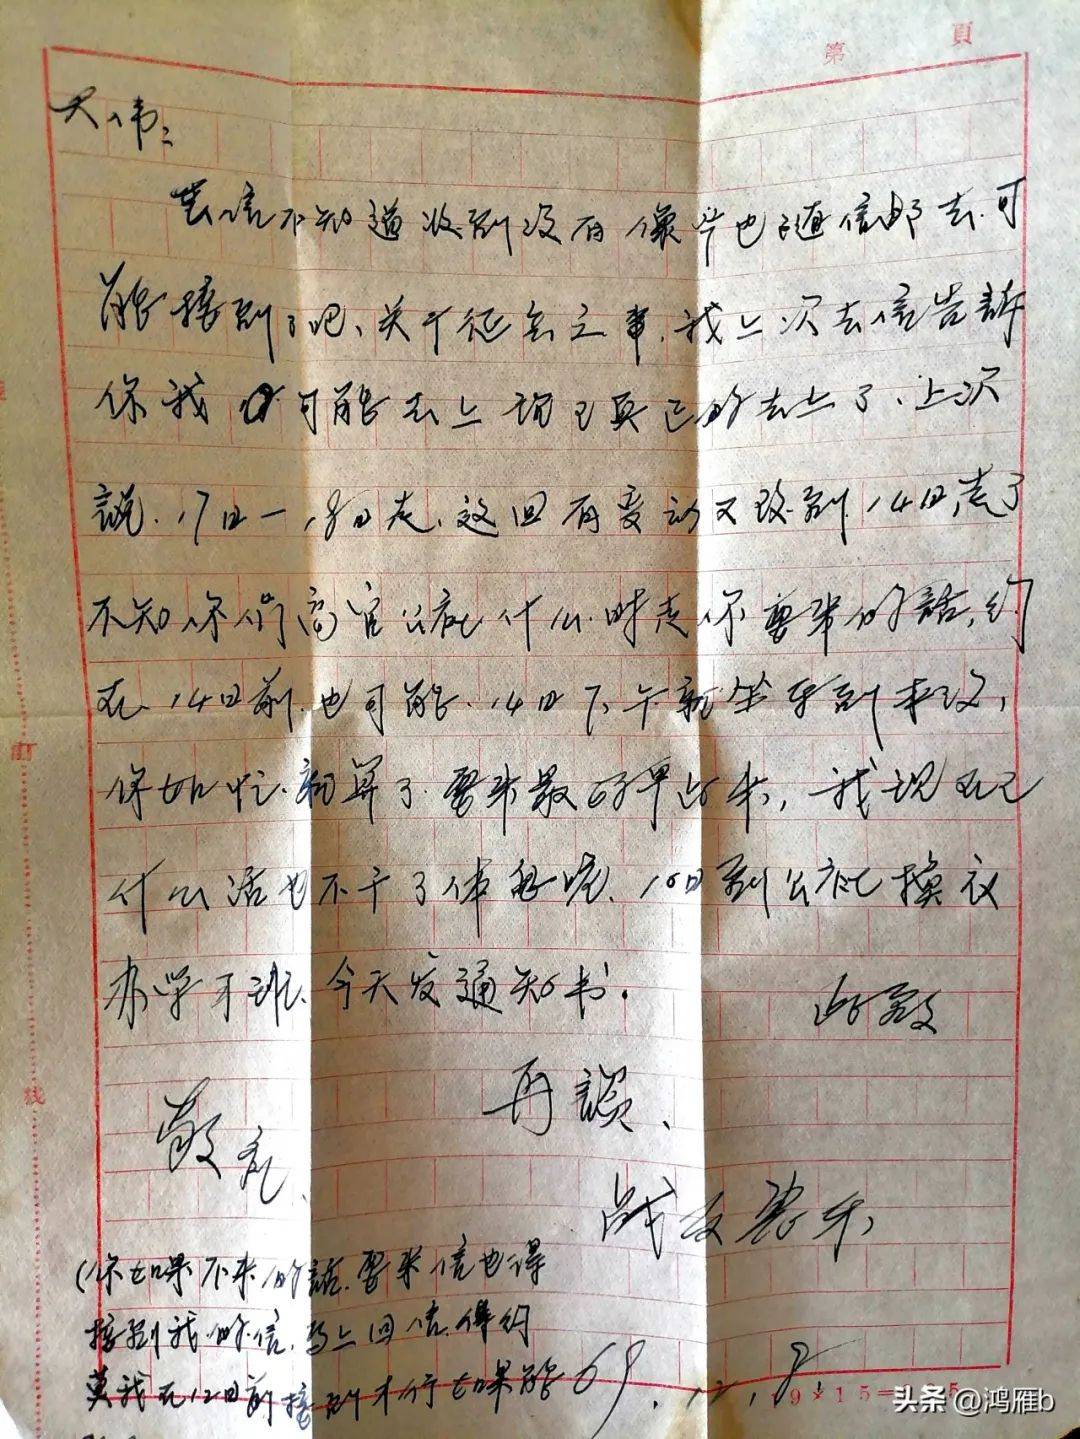 第 頁
大伟：
去信不知道收到没有像片也随信邮去.可
能接到了吧、关于征兵之事.我上次去信告訴
你我可能去上现已真正的去上了.上次
說.17日一18日走.这回有变动又改到14日走了
不知你们高官公社什么.时走你要来的話,约
在.14日前.也可能.14日下午就坐车到
你如忙.就算了.要来最好早点来,我现在已
什么活也不干了休息呢.10日到公社换衣
办学习班、今天发通知书.
此致
敬礼.
再談、
战友
(你如果不来的話.要来信也得
接到我的信.马上回信.得约
莫我在12日前接到才行如果能
69.12.8.
9×15=
订
线
头条 @鸿雁b